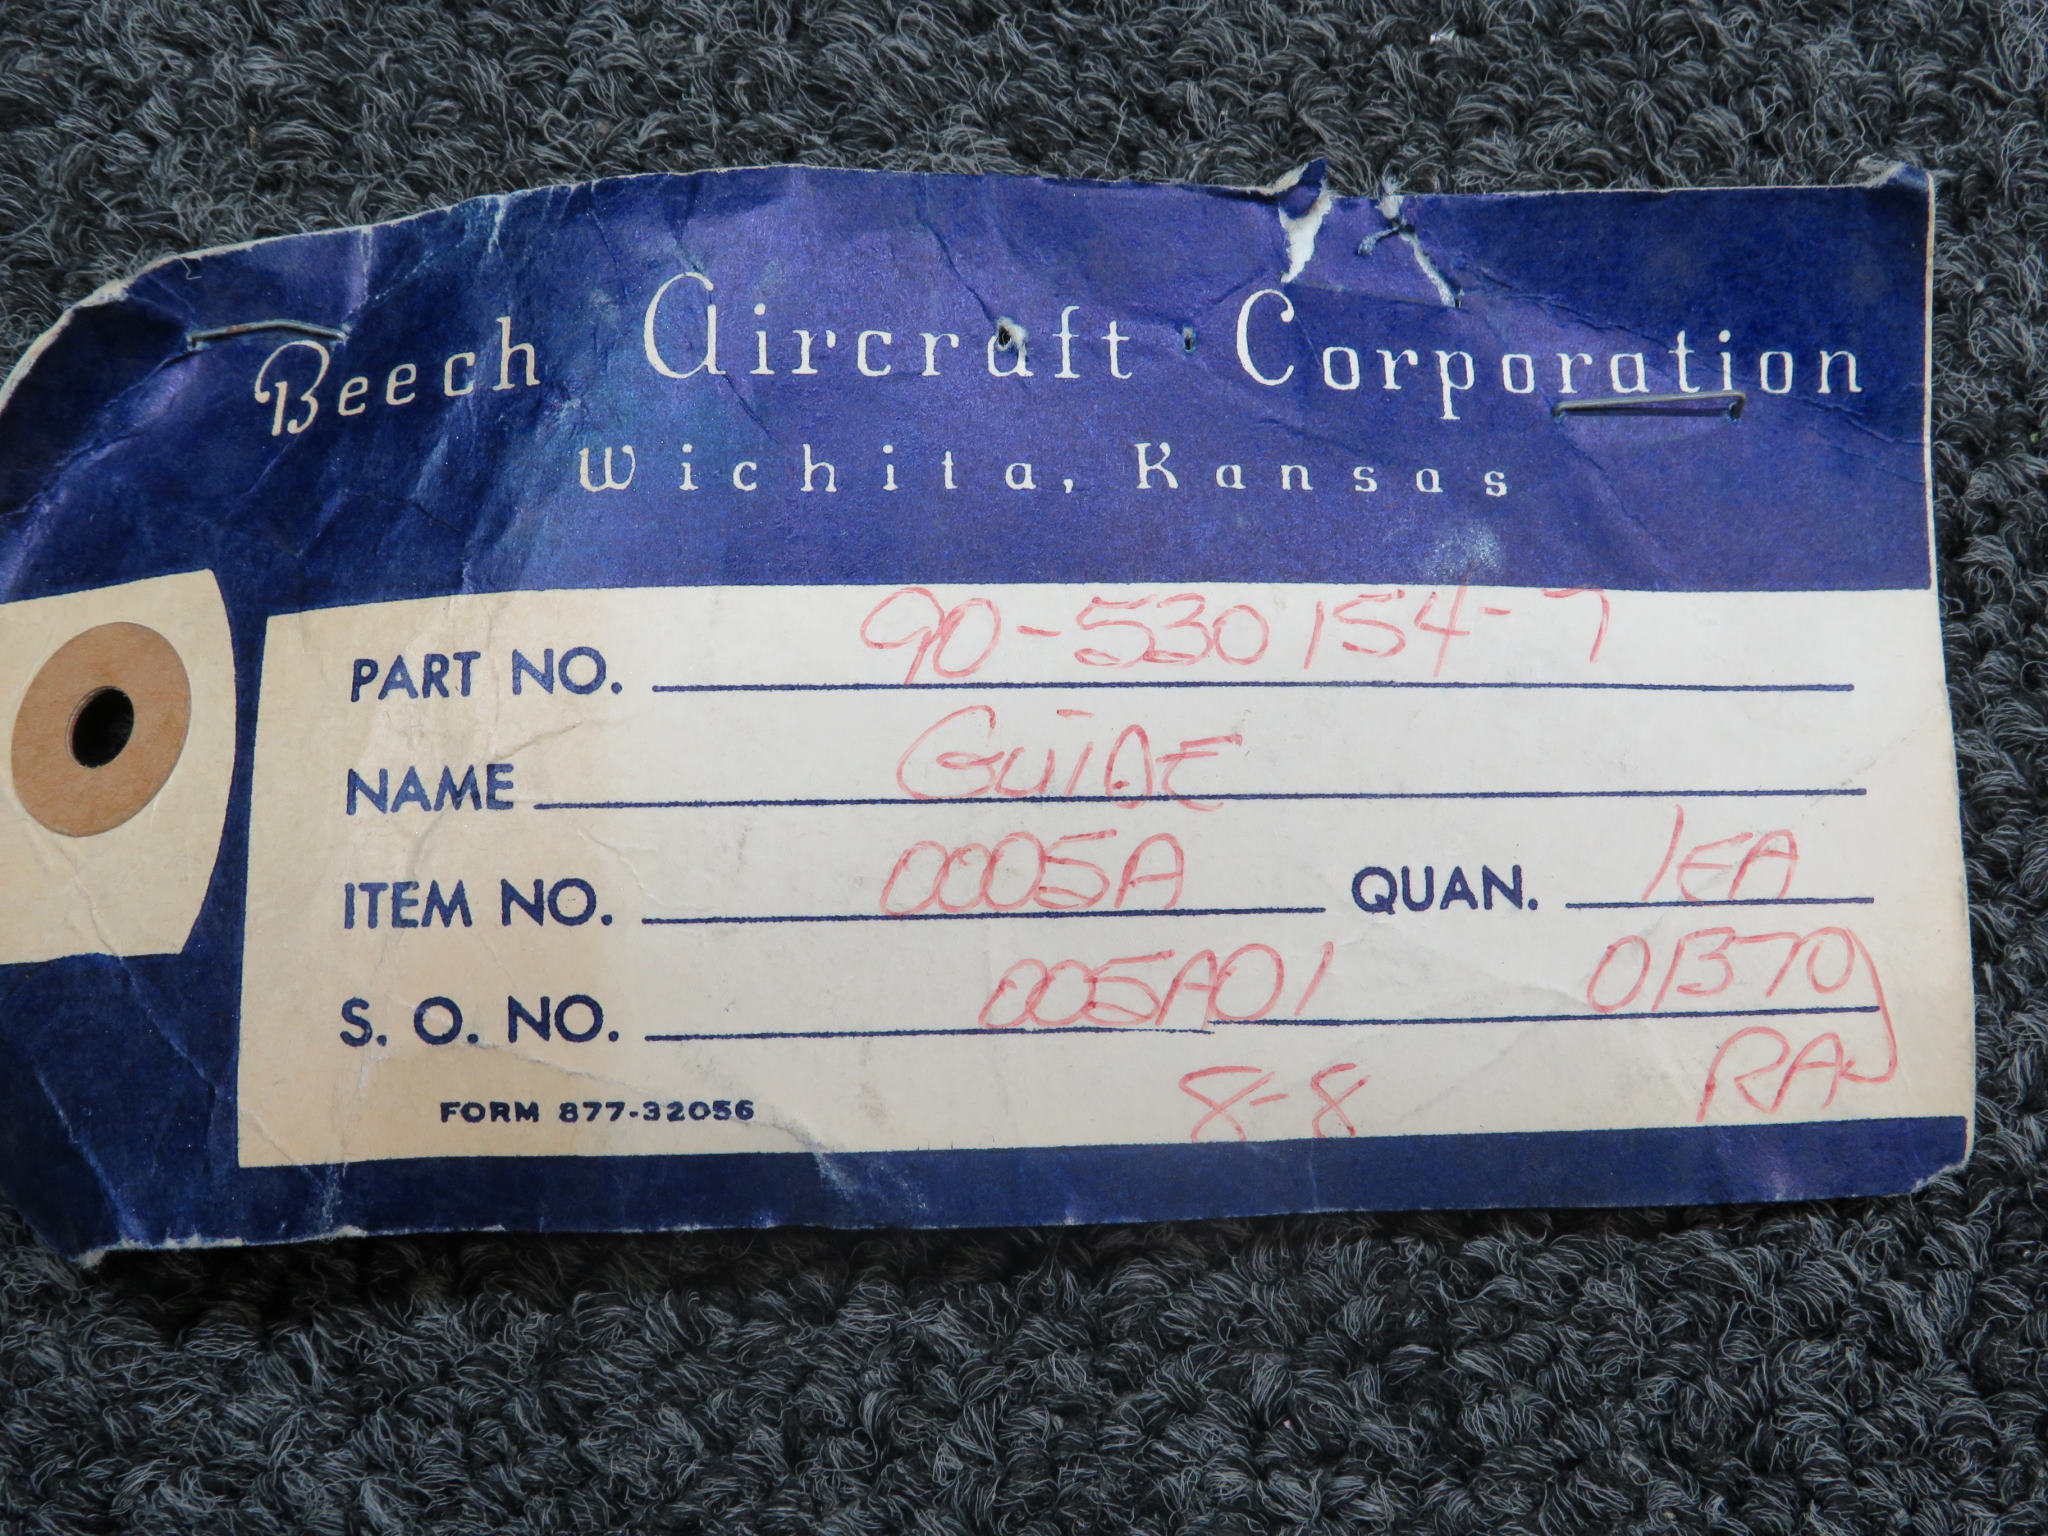 Beech Aircraft Corporation
Wichita, Kansas
PART NO. 90-530154-7
NAME GUIDE
ITEM NO. 0005A QUAN. 1EA
S. O. NO. 005A01 01370
FORM 877-32056 8-8 RAJ